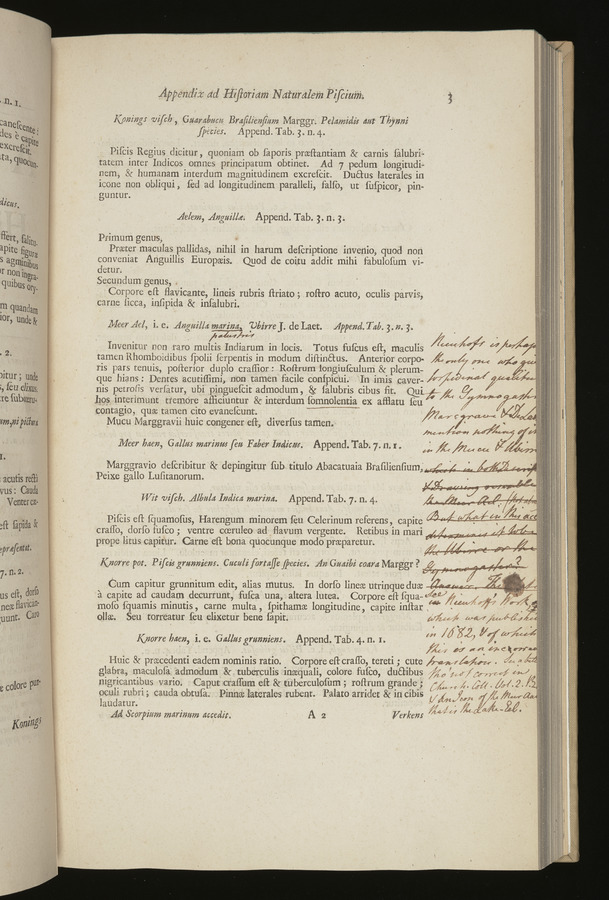 Appendix ad Hiſtoriam Naturalem Piſcium. 3
Konings viſch, Guarabucu Braſilienſium Marggr. Pelamidis aut Thynni
ſpecies. Append. Tab. 3. n. 4.
Piſcis Regius dicitur, quoniam ob ſaporis præſtantiam & carnis ſalubri-
tatem inter Indicos omnes principatum obtinet. Ad 7 pedum longitudi-
nem, & humanam interdum magnitudinem excreſcit. Ductus laterales in
icone non obliqui, ſed ad longitudinem paralleli, falſo, ut ſuſpicor, pin-
guntur.
Aelem, Anguillæ. Append. Tab. 3. n. 3.
Primum genus,
Præter maculas pallidas, nihil in harum deſcriptione invenio, quod non
conveniat Anguillis Europæis. Quod de coitu addit mihi fabuloſum vi-
detur.
Secundum genus,
Corpore eſt flavicante, lineis rubris ſtriato; roſtro acuto, oculis parvis,
carne ſicca, inſipida & inſalubri.
Meer Ael, i. e. Anguilla marina, Ubirre J. de Laet. Append. Tab. 3. n. 3.
palustris
Invenitur non raro multis Indiarum in locis. Totus fuſcus eſt, maculis
tamen Rhomboidibus ſpolii ſerpentis in modum diſtinctus. Anterior corpo-
ris pars tenuis, poſterior duplo craſſior: Roſtrum longiuſculum & plerum-
que hians: Dentes acutiſſimi, non tamen facile conſpicui. In imis caver-
nis petroſis verſatur, ubi pingueſcit admodum, & ſalubris cibus fit. Qui
hos interimunt tremore afficiuntur & interdum ſomnolentia ex afflatu ſeu
contagio, quæ tamen cito evaneſcunt.
Mucu Marggravii huic congener eſt, diverſus tamen.
Meer haen, Gallus marinus ſeu Faber Indicus. Append. Tab. 7. n. 1.
Marggravio deſcribitur & depingitur ſub titulo Abacatuaia Braſilienſium,
Peixe gallo Luſitanorum.
Wit viſch. Albula Indica marina. Append. Tab. 7. n. 4.
Piſcis eſt ſquamoſus, Harengum minorem ſeu Celerinum referens, capite
craſſo, dorſo fuſco; ventre cœruleo ad flavum vergente. Retibus in mari
prope litus capitur. Carne eſt bona quocunque modo præparetur.
Knorre pot. Piſcis grunniens. Cuculi fortaſſe ſpecies. An Guaibi coara Marggr?
Cum capitur grunnitum edit, alias mutus. In dorſo lineæ utrinque duæ
à capite ad caudam decurrunt, fuſca una, altera lutea. Corpore eſt ſqua-
moſo ſquamis minutis, carne multa, ſpithamæ longitudine, capite inſtar
ollæ. Seu torreatur ſeu elixetur bene ſapit.
Knorre haen, i. e. Gallus grunniens. Append. Tab. 4. n. 1.
Huic & præcedenti eadem nominis ratio. Corpore eſt craſſo, tereti; cute
glabra, maculoſa admodum & tuberculis inæquali, colore fuſco, ductibus
nigricantibus vario. Caput craſſum eſt & tuberculoſum; roſtrum grande;
oculi rubri; cauda obtuſa. Pinnæ laterales rubent. Palato arridet & in cibis
laudatur.
Ad Scorpium marinum accedit. A 2 Verkens
Nieuhoff is perhaps
the only one who
torpedinal
to the Gymnogaster
Marcgrave & De Laet
mention nothing of it
in the Mucu & Ubirre
But what in this
the Ubirre or the
Gymnogaster?
Answer. The
See Nieuhoff's Work
which was published
in 1682, & of which
this is an incorrect
translation.
Church. Coll. Vol. 2.
that is the Lake-Eel.
n. 1.
2.
7. n. 2.
Konings